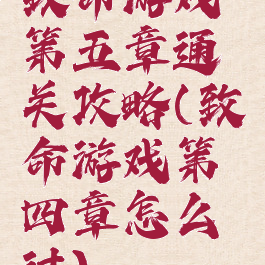 致命游戏
第五章通
关攻略(致
命游戏第
四章怎么
过)